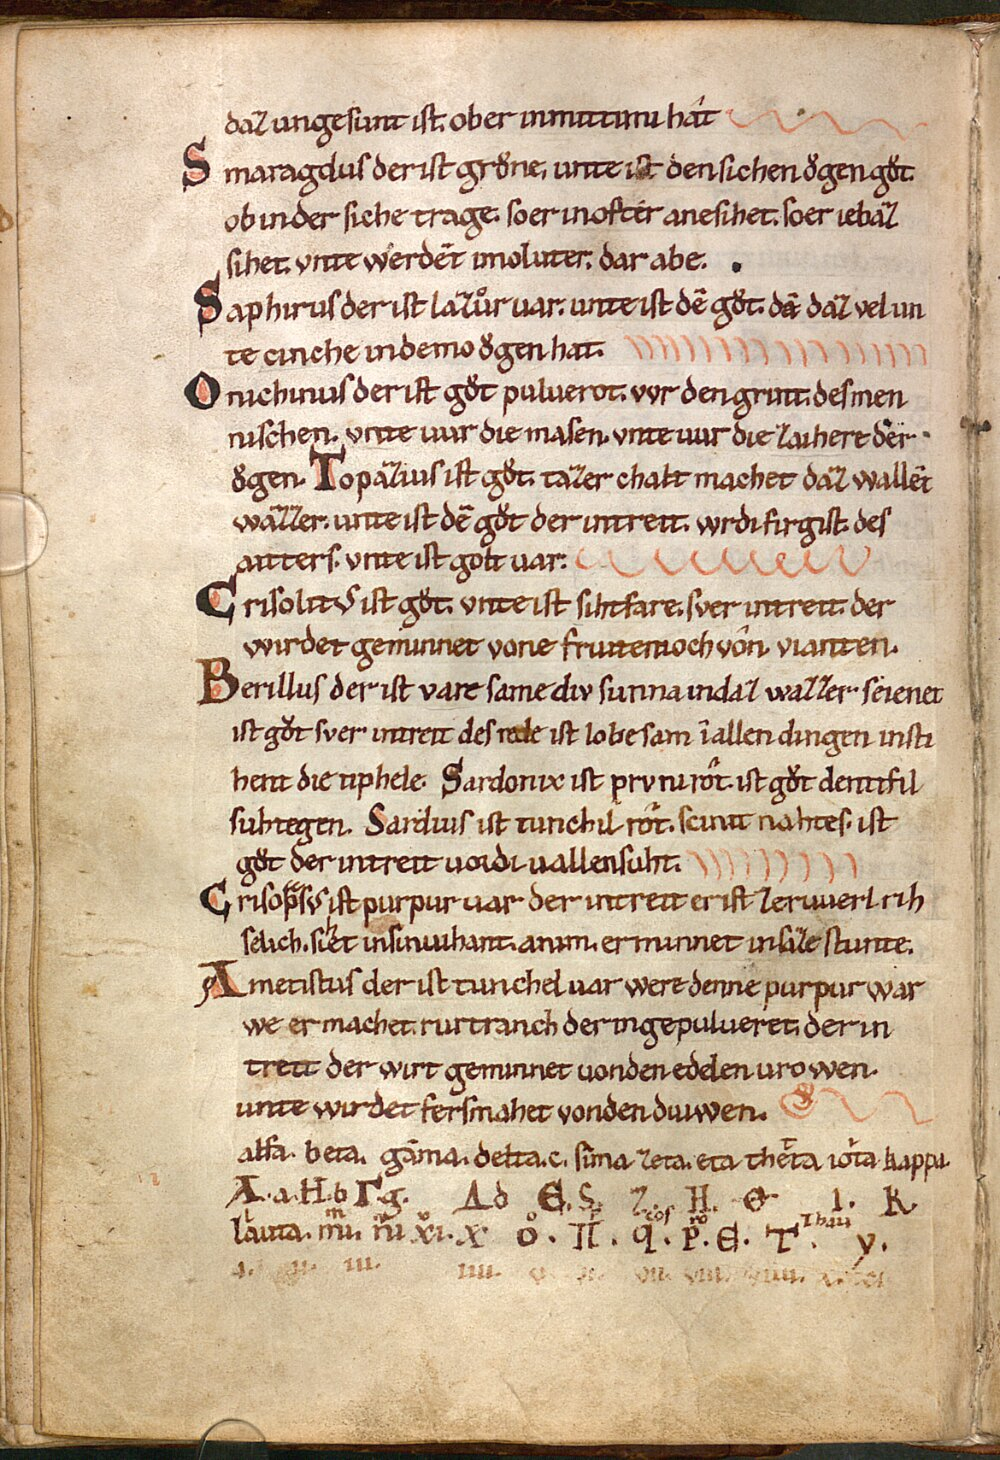 daz ungesunt ist. ober inmittimi hât
Smaragdus der ist grŏne, unte ist den sichen ŏgen gŏt.
ob in der siche trage. so er in ofter anesihet. so er iebaz
sihet. vnte werdēt imo luter. dar abe.
Saphirus der ist lazůr uar. unte ist dē gŏt. dē daz vel un
te einche in demo ŏgen hat.
Onichinus der ist gŏt puluerot. vvr den grint. des men
nischen. vnte uur die masen. vnte uur die zaihere der
ŏgen. Topazius ist gŏt. tazer chalt machet daz wallēt
wazzer. unte ist dē gŏt der in treit. wrdi firgist. des
aitters. vnte ist golt uar.
Crisolitus ist gŏt. vnte ist sihtfare. sver in treit. der
wirdet geminnet vone frunten ioch vôn. vianten.
Berillus der ist vare same div sunna in daz wazzer sêienet
ist gŏt sver in treit des rede ist lobesam ī allen dingen in sti
hent die tiphele. Sardonix ist prvn rôt. ist gŏt demi fil
suhtegen. Sardius ist tunchil rôt. scinit nahtes. ist
gŏt der in treit uordi uallensuht.
Crisoprsus ist purpur uar der in treit er ist ze ruuerl. rih
selich. siet in sinuuhant. anim. er minnet in saze stunte.
Ametistus der ist tunchel uar were denne purpur war
we er machet. rurtranch der in gepulueret. der in
treit der wirt geminnet uon den edelen urowen.
unte wirdet fersmahet von den diuwen.
alfa. beta. gāma. delta. e. sima zeta. eta thēta iota kappa.
A. a. H. b Γ g. Δ d Є. S. Z. H. Θ I. K.
lauta. mi. ni xi. X o. Π. q. P. Є. T. y.
i. ii. iii. iiii. v. vi. vii. viii. viiii. x. xi